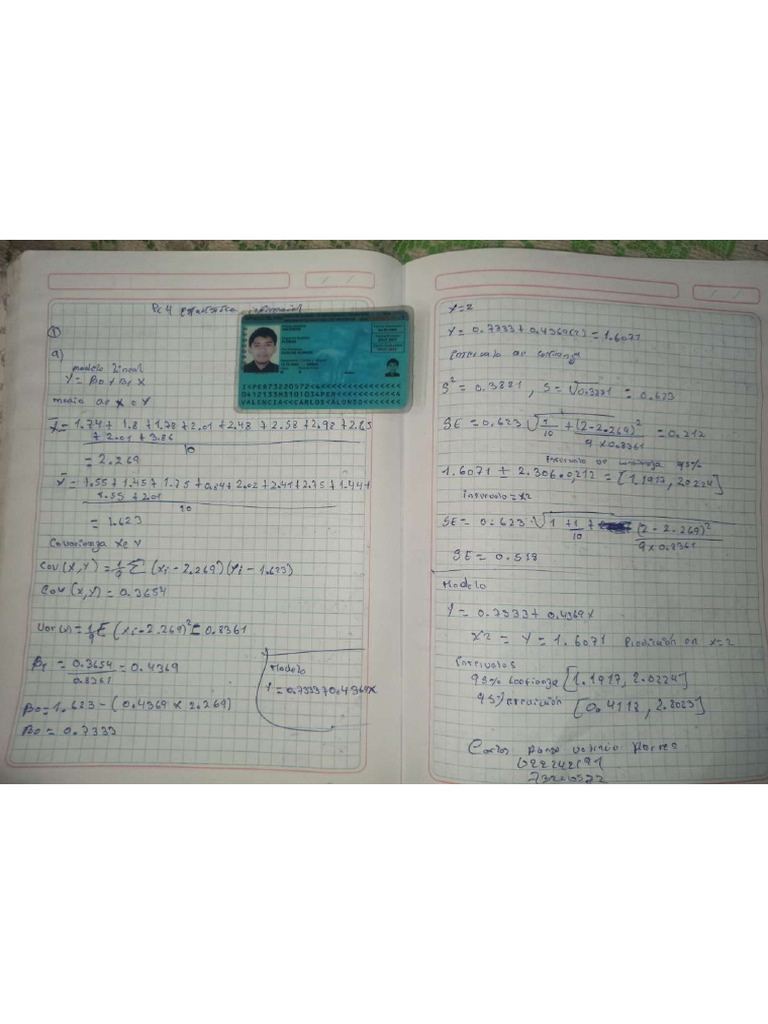 Pc 4 estadística inferencial
①
a)
modelo lineal
Y = Bo + B1 X
media de X e Y
X̄ = 1.74 + 1.8 + 1.78 + 2.01 + 2.48 + 2.58 + 2.98 + 2.65
+ 2.01 + 3.86
10
= 2.269
1.55 + 1.45 + 1.75 + 0.84 + 2.02 + 2.41 + 2.75 + 1.44 +
1.55 + 2.01
10
= 1.623
Covarianza X e Y
Cov(X,Y) = 1/9 Σ (xi - 2.269)(yi - 1.623)
Cov(X,Y) = 0.3654
Var(x) = 1/9 Σ (xi - 2.269)² = 0.8361
B1 = 0.3654 / 0.8361 = 0.4369
Bo = 1.623 - (0.4369 x 2.269)
Bo = 0.7333
Modelo
Y = 0.7333 + 0.4369x
VALENCIA
CARLOS ALONSO
0412133M3101034PER<<<<<<<<<<<4
VALENCIA<<CARLOS<ALONSO<<<<<<<
X = 2
Y = 0.7333 + 0.4369(2) = 1.6071
Intervalo de confianza
S² = 0.3881 , S = √0.3881 = 0.623
SE = 0.623 √ 1/10 + (2 - 2.269)² / 9 x 0.8361 = 0.212
Intervalo de confianza 95%
1.6071 ± 2.306 . 0,212 = [1.1917, 2.0224]
Intervalo = x2
SE = 0.623 . √ 1 + 1/10 + (2 - 2.269)² / 9 x 0.8361
SE = 0.518
Modelo
Y = 0.7333 + 0.4369x
x2 = Y = 1.6071 Predicción en x=2
Intervalos
95% confianza [1.1917, 2.0224]
95% predicción
Carlos Alonso Valencia